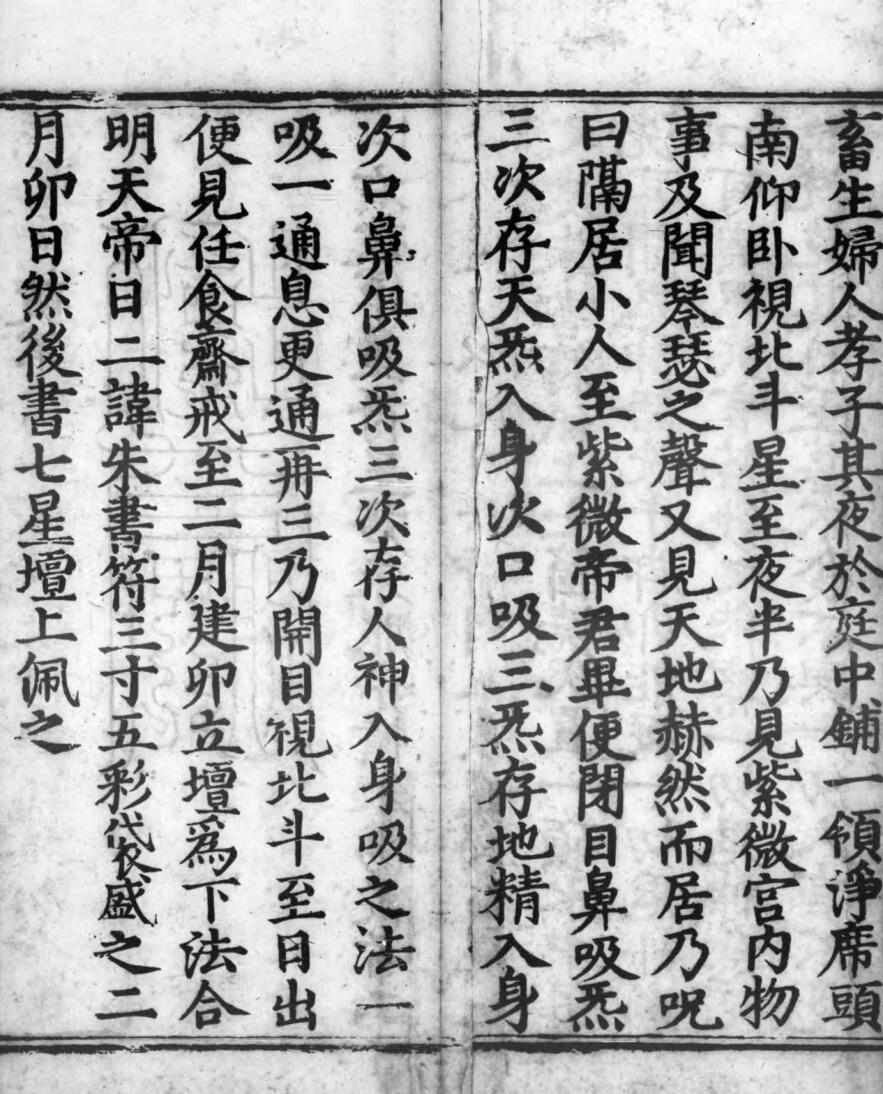 畜生婦人孝子其夜於庭中鋪一領淨席頭
南仰卧視北斗星至夜半乃見紫微宫内物
事及聞琴瑟之聲又見天地赫然而居乃呪
曰隔居小人至紫微帝君畢便閉目鼻吸炁
三次存天炁入身次口吸三炁存地精入身
次口鼻俱吸炁三次存人神入身吸之法一
吸一通息更通再三乃開目視北斗至日出
便見任食齋戒至二月建卯立壇爲下法合
明天帝日二諱朱書符三寸五彩袋盛之二
月卯日然後書七星壇上佩之